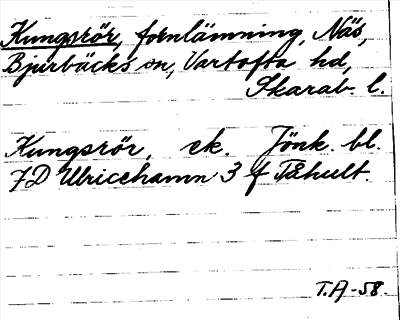 Kungsrör, fornlämning, Näs,
Bjurbäcks sn, Vartofta hd,
Skarab. l.
Kungsrör, ek. Jönk. bl.
7D Ulricehamn 3 f Tåhult.
T.A-58.